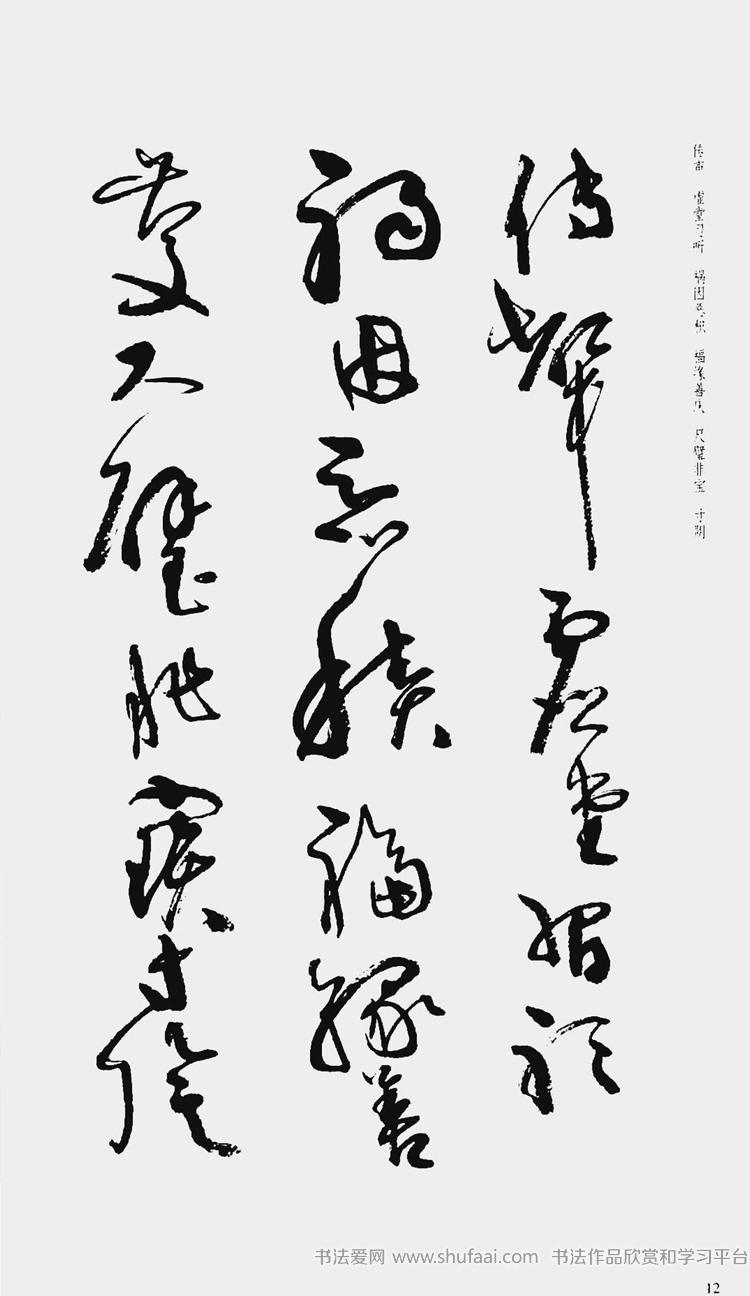 传声 虚堂习听 祸因恶积 福缘善庆 尺璧非宝 寸阴
傳聲虛堂習聽
禍因惡積福緣善
慶尺璧非寶寸陰
书法爱网 www.shufaai.com 书法作品欣赏和学习平台
12